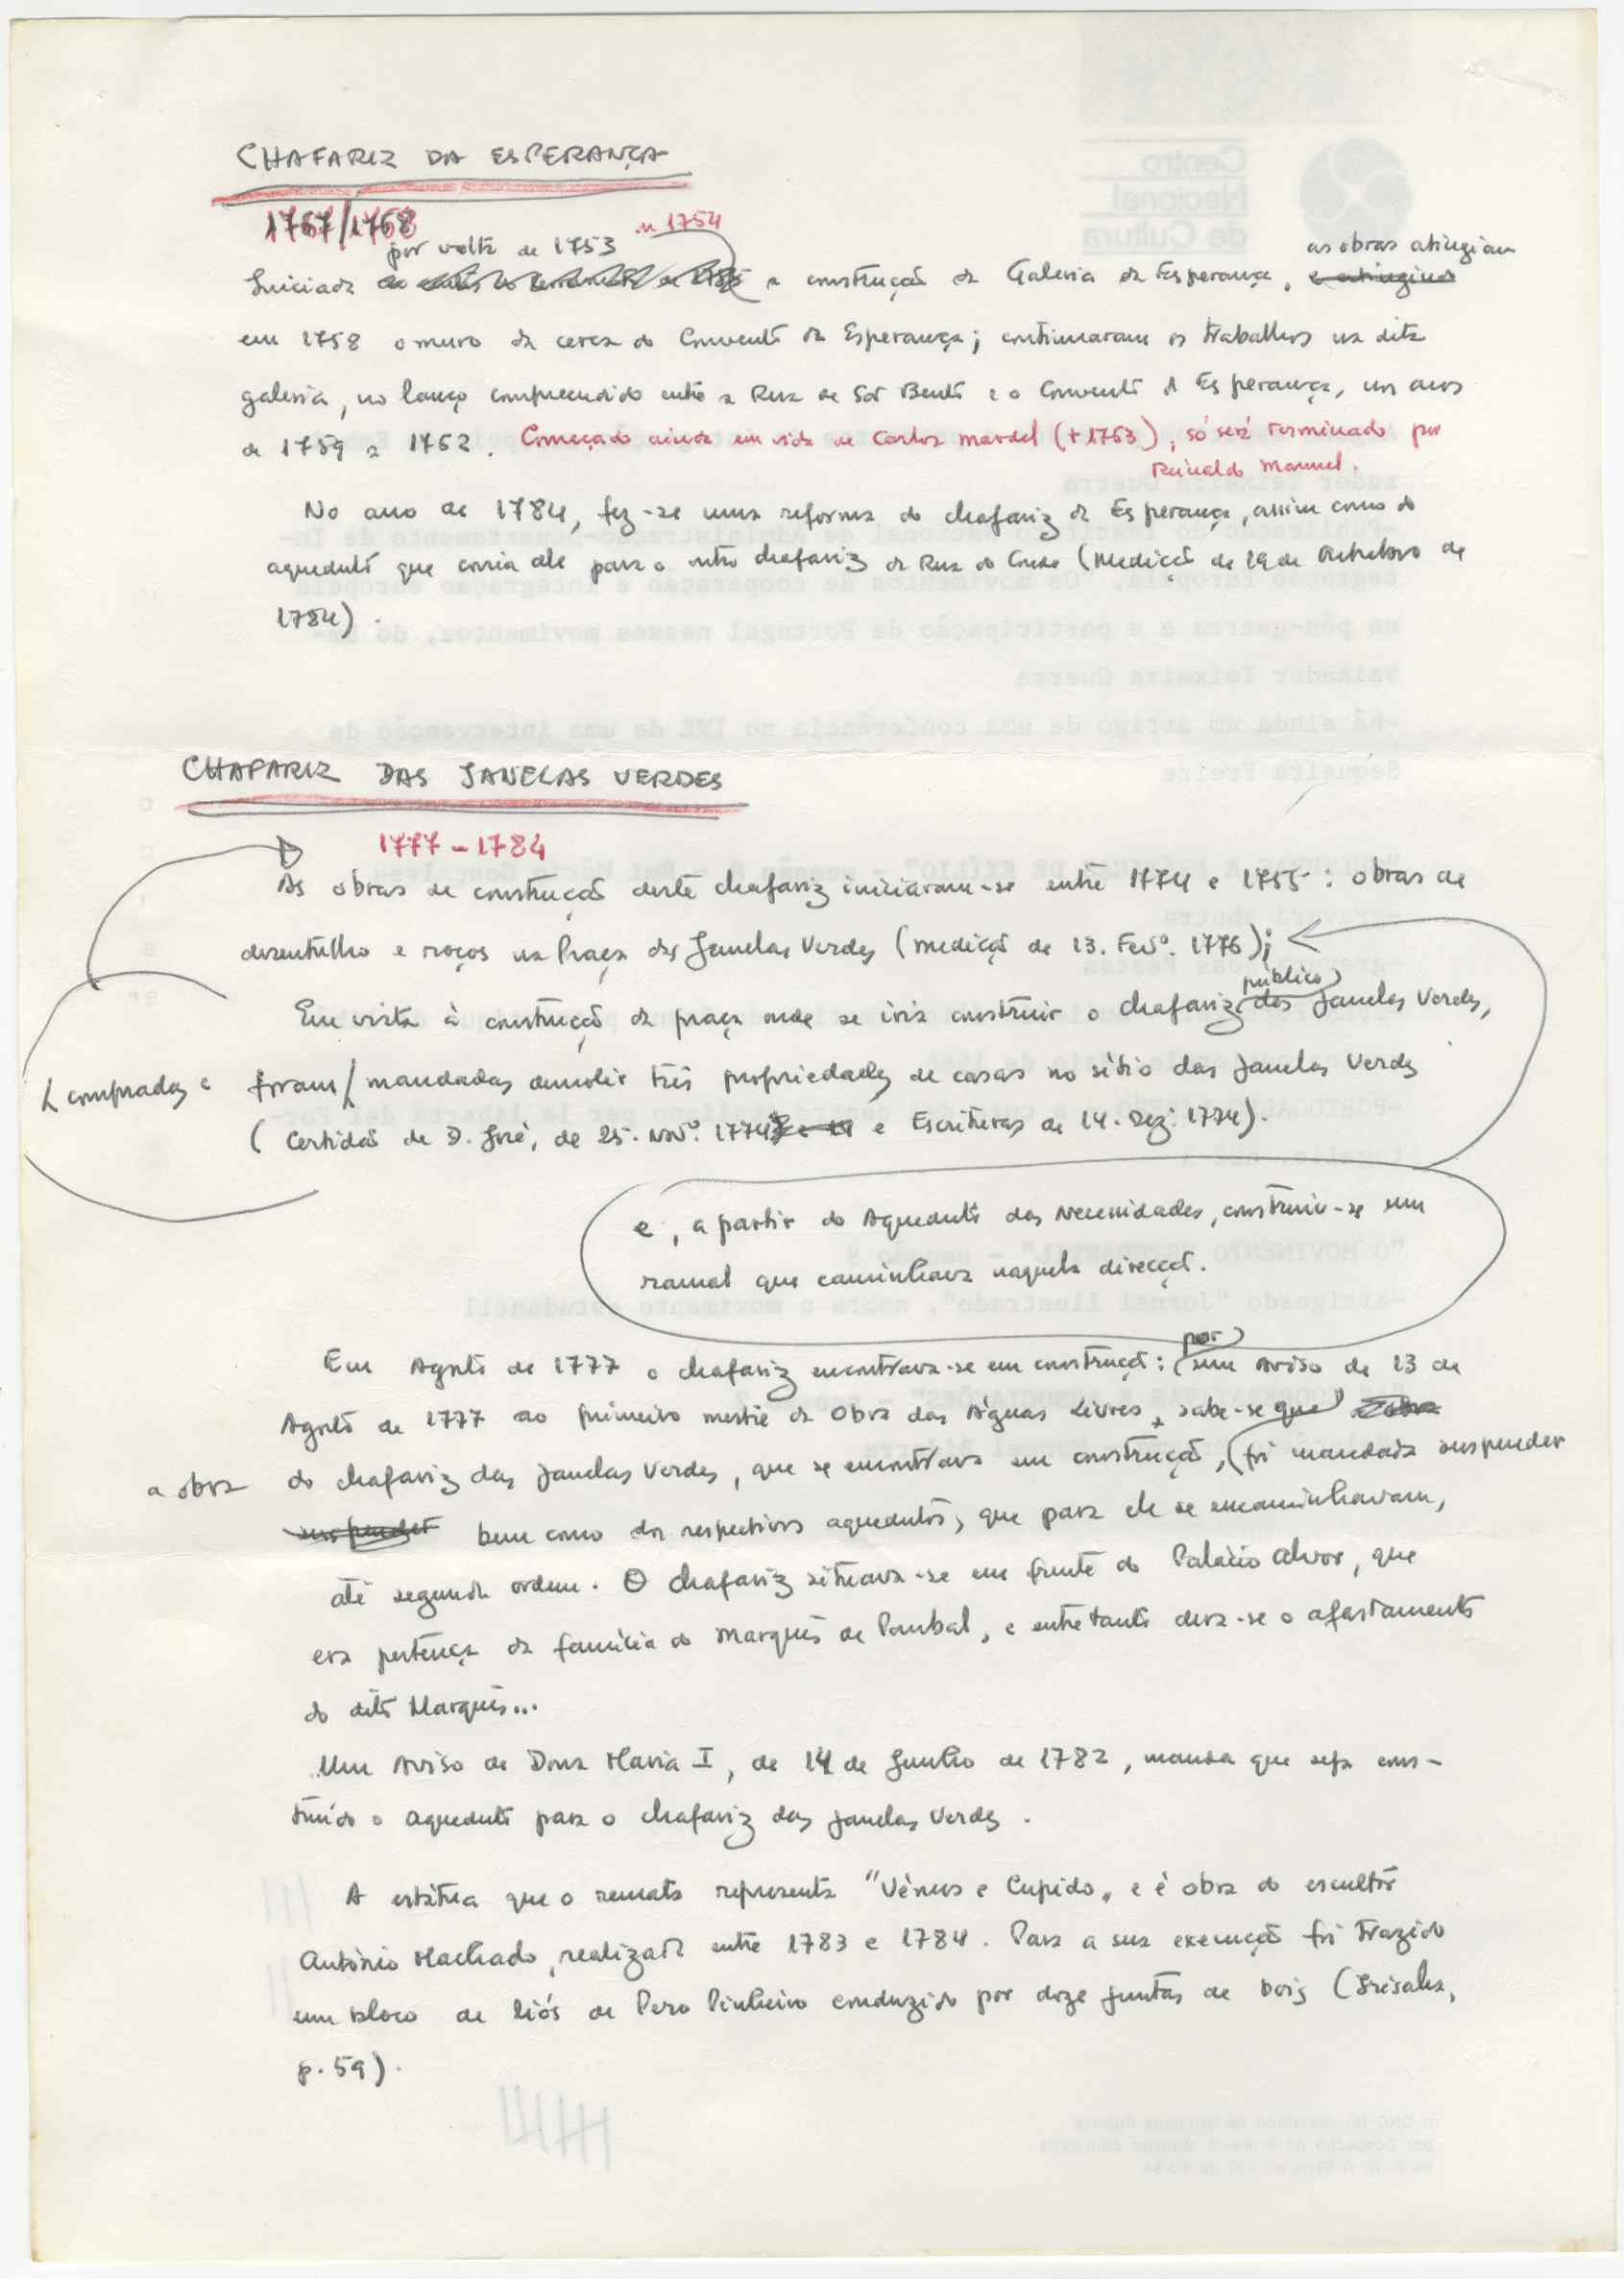 CHAFARIZ DA ESPERANÇA
1767/1768
por volta de 1753 ou 1754
as obras atingiam
Iniciada a construção da Galeria da Esperança,
em 1758 o muro da cerca do Convento da Esperança; continuaram os trabalhos na dita
galeria, no lanço compreendido entre a Rua de São Bento e o Convento da Esperança, nos anos
de 1759 a 1762. Começado ainda em vida de Carlos Mardel (+1763), só será terminado por
Reinaldo Manuel.
No ano de 1784, fez-se uma reforma do chafariz da Esperança, assim como do
aqueduto que corria dele para o outro chafariz da Rua do Conde (Medição de 19 de Outubro de
1784).
CHAFARIZ DAS JANELAS VERDES
1777-1784
As obras de construção deste chafariz iniciaram-se entre 1774 e 1755: obras de
desentulho e roços na Praça das Janelas Verdes (medição de 13. Fevº. 1776);
público
Em vista à construção da praça onde se iria construir o chafariz das Janelas Verdes,
comprados e
foram mandadas demolir três propriedades de casas no sítio das Janelas Verdes
(Certidão de D. José, de 25. Novº. 1774 e Escrituras de 14. Dez. 1774).
e, a partir do Aqueduto das Necessidades, construiu-se um
ramal que caminhava naquela direcção.
por
Em Agosto de 1777 o chafariz encontrava-se em construção: um Aviso de 13 de
Agosto de 1777 ao primeiro mestre da Obra das Águas Livres, sabe-se que
a obra do chafariz das Janelas Verdes, que se encontrava em construção, foi mandada suspender
suspender bem como dos respectivos aquedutos, que para ele se encaminhavam,
até segunda ordem. O chafariz situava-se em frente do Palácio Alvor, que
era pertença da família do Marquês de Pombal, e entretanto dera-se o afastamento
do dito Marquês...
Um Aviso de Dona Maria I, de 14 de Junho de 1782, manda que seja cons-
truído o aqueduto para o chafariz das Janelas Verdes.
A estátua que o remata representa "Vénus e Cupido" e é obra do escultor
António Machado, realizada entre 1783 e 1784. Para a sua execução foi trazido
um bloco de liós de Pero Pinheiro conduzido por doze juntas de bois (Grisalva,
p. 59).